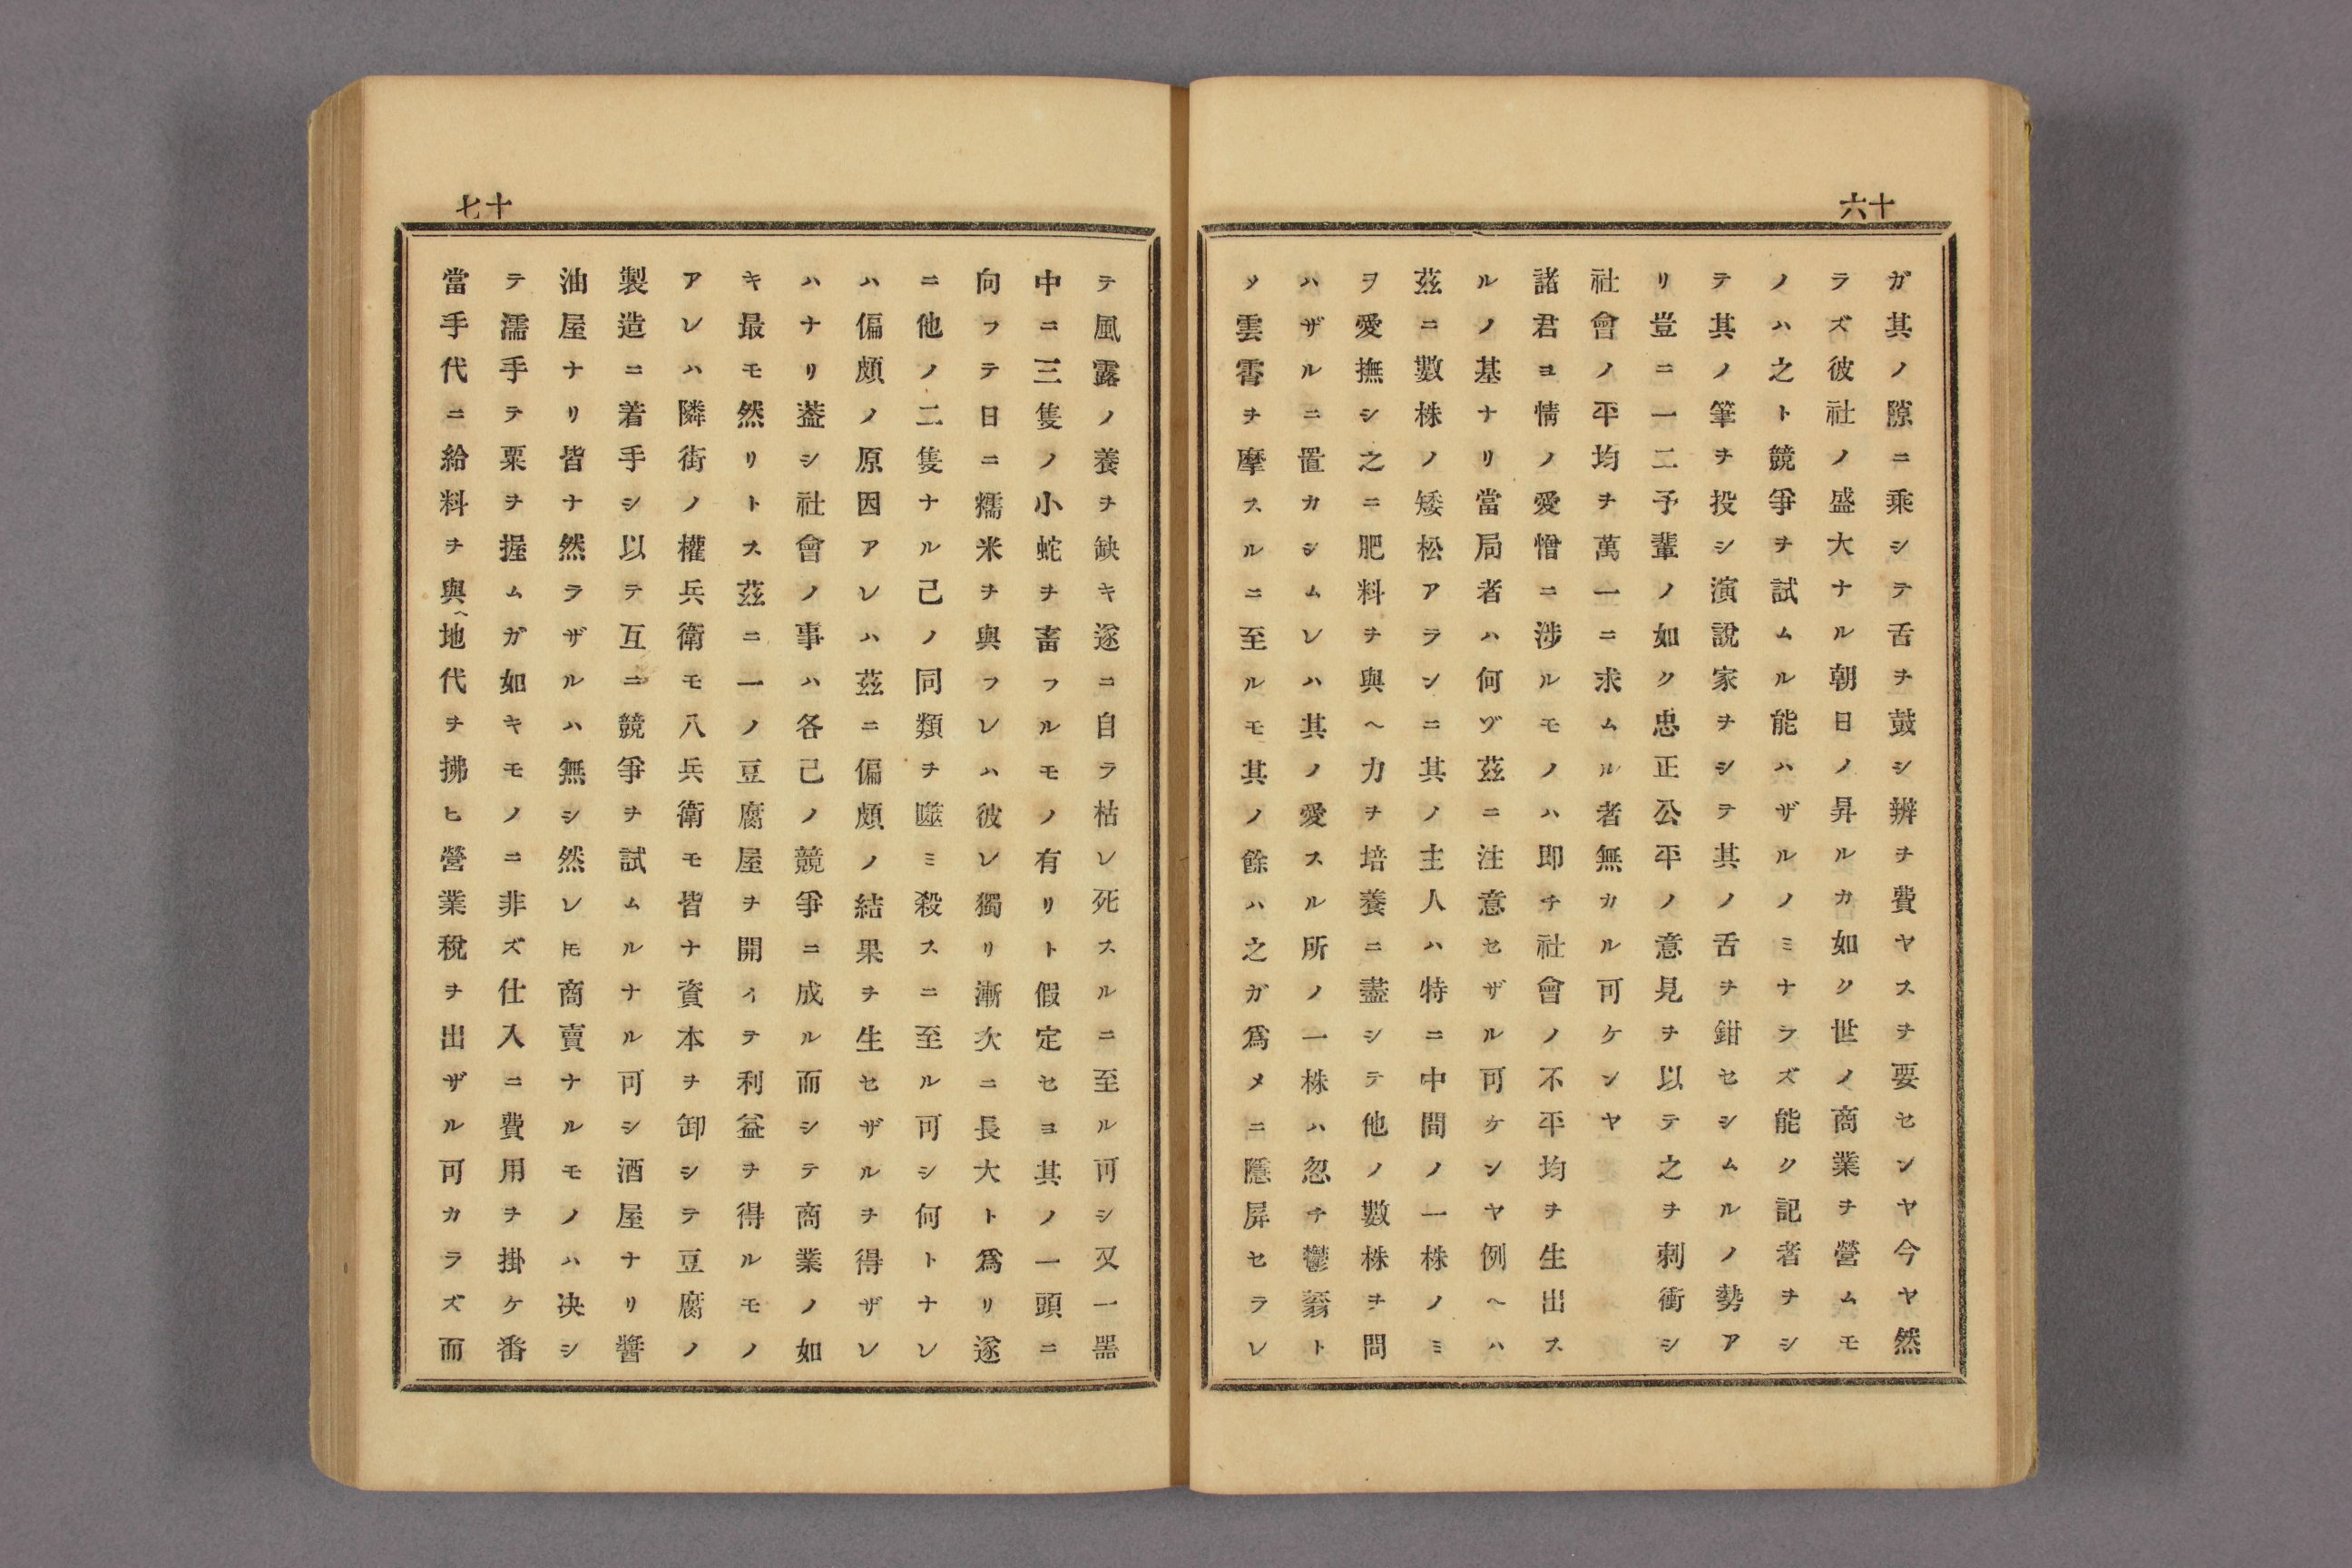 十六
ガ其ノ隙ニ乘シテ舌ヲ鼓シ辨ヲ費ヤスヲ要センヤ今ヤ然
ラズ彼社ノ盛大ナル朝日ノ昇ルカ如ク世ノ商業ヲ營ムモ
ノハ之ト競爭ヲ試ムル能ハザルノミナラズ能ク記者ヲシ
テ其ノ筆ヲ投シ演說家ヲシテ其ノ舌ヲ鉗セシムルノ勢ア
リ豈ニ一二予輩ノ如ク忠正公平ノ意見ヲ以テ之ヲ刺衝シ
社會ノ平均ヲ萬一ニ求ムル者無カル可ケンヤ
諸君ヨ情ノ愛憎ニ涉ルモノハ即チ社會ノ不平均ヲ生出ス
ルノ基ナリ當局者ハ何ヅ茲ニ注意セザル可ケンヤ例ヘハ
茲ニ數株ノ矮松アランニ其ノ主人ハ特ニ中間ノ一株ノミ
ヲ愛撫シ之ニ肥料ヲ與ヘ力ヲ培養ニ盡シテ他ノ數株ヲ問
ハザルニ置カシムレハ其ノ愛スル所ノ一株ハ忽チ鬱蓊ト
メ雲霄ヲ摩スルニ至ルモ其ノ餘ハ之ガ爲メニ隱屛セラレ
十七
テ風露ノ養ヲ缺キ遂ニ自ラ枯レ死スルニ至ル可シ又一噐
中ニ三隻ノ小蛇ヲ畜フルモノ有リト假定セヨ其ノ一頭ニ
向フテ日ニ糯米ヲ與フレハ彼レ獨リ漸次ニ長大ト爲リ遂
ニ他ノ二隻ナル己ノ同類ヲ噬ミ殺スニ至ル可シ何トナレ
ハ偏頗ノ原因アレハ茲ニ偏頗ノ結果ヲ生セザルヲ得ザレ
ハナリ蓋シ社會ノ事ハ各己ノ競爭ニ成ル而シテ商業ノ如
キ最モ然リトス茲ニ一ノ豆腐屋ヲ開イテ利益ヲ得ルモノ
アレハ隣街ノ權兵衛モ八兵衛モ皆ナ資本ヲ卸シテ豆腐ノ
製造ニ着手シ以テ互ニ競爭ヲ試ムルナル可シ酒屋ナリ醬
油屋ナリ皆ナ然ラザルハ無シ然レ𪜈商賣ナルモノハ决シ
テ濡手テ粟ヲ握ムガ如キモノニ非ズ仕入ニ費用ヲ掛ケ番
當手代ニ給料ヲ與ヘ地代ヲ拂ヒ營業稅ヲ出ザル可カラズ而